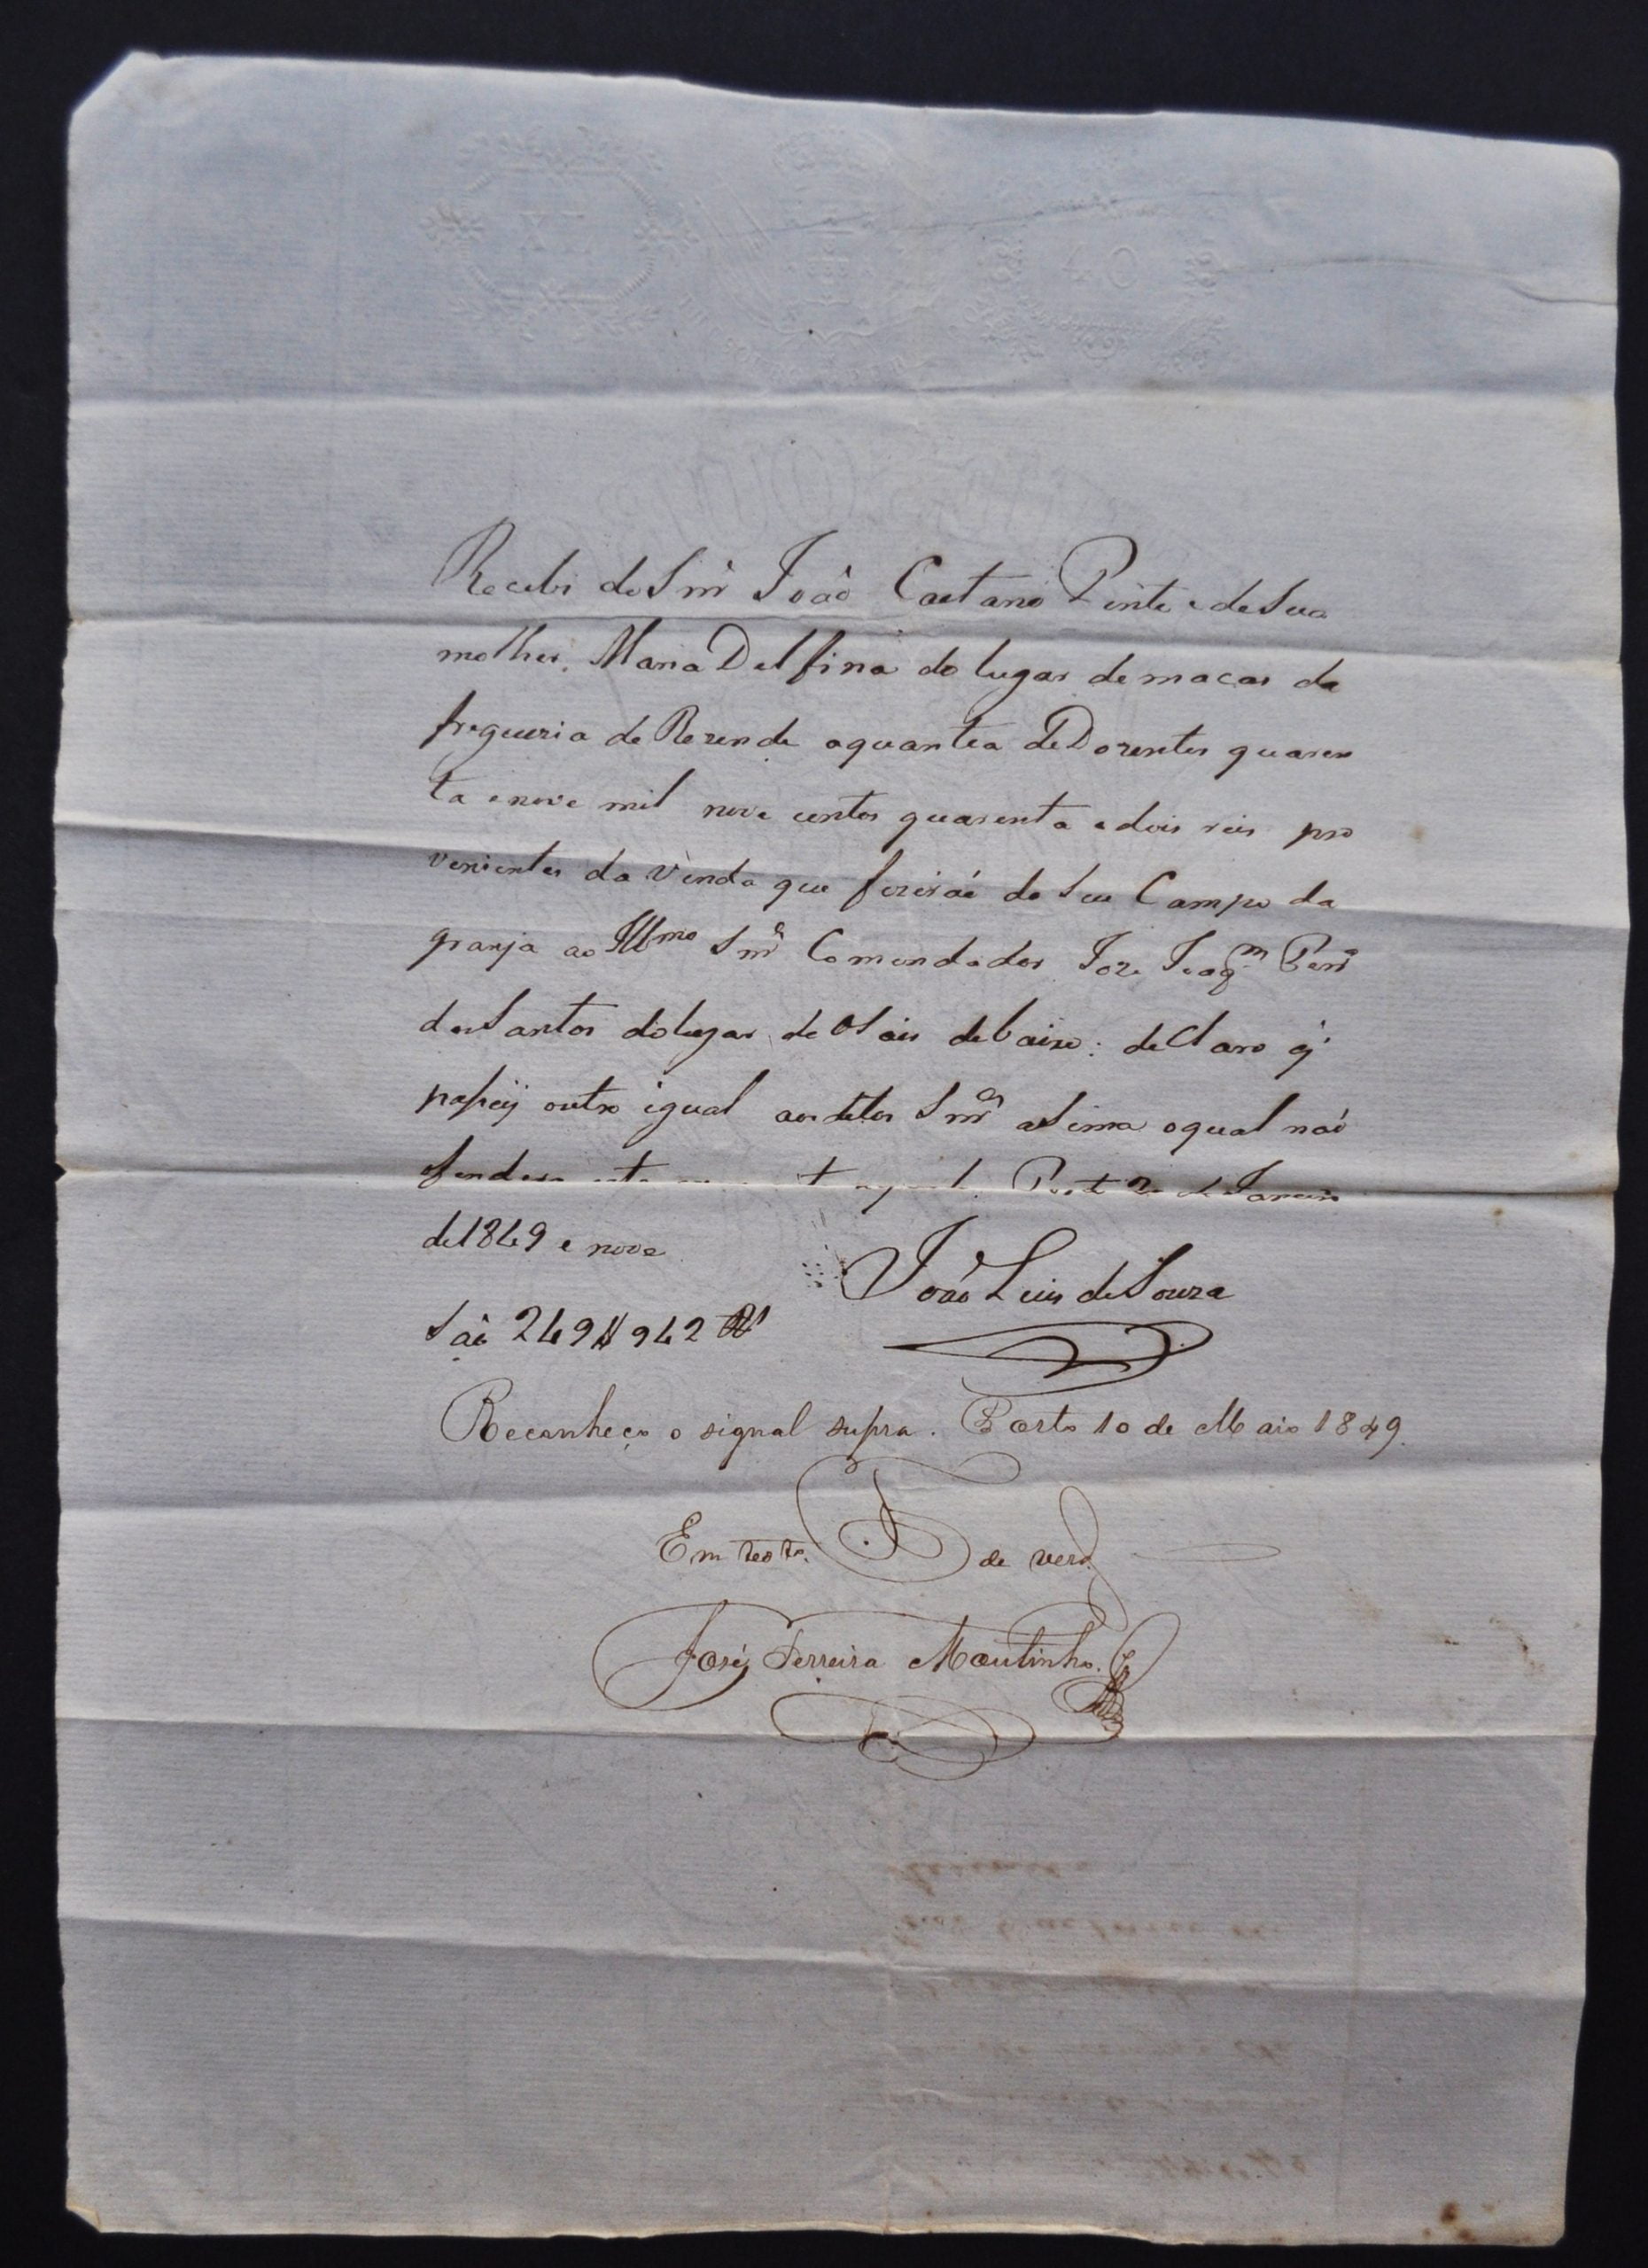 Recebi do Snr João Caetano Pinto e de Sua
molher, Maria Delfina do lugar de macas da
freguezia de Rezende aquantia de Dozentos quaren
ta e nove mil nove centos quarenta e dois reis pro
venientes da Venda que fizeráo do seu Campo da
granja ao Illmo Snr Comendador Joze Joaqm Perª
dos Santos do lugar de de baixo: de Claro q'
pasei outro igual aos ditos Snres asima o qual náo
de Janeiro
de 1849 e nove
João Luis de Souza
Sáo 249$942 Rs
Reconheço o signal supra. Porto 10 de Maio 1849.
Em testo. de verde
José Ferreira Moutinho.